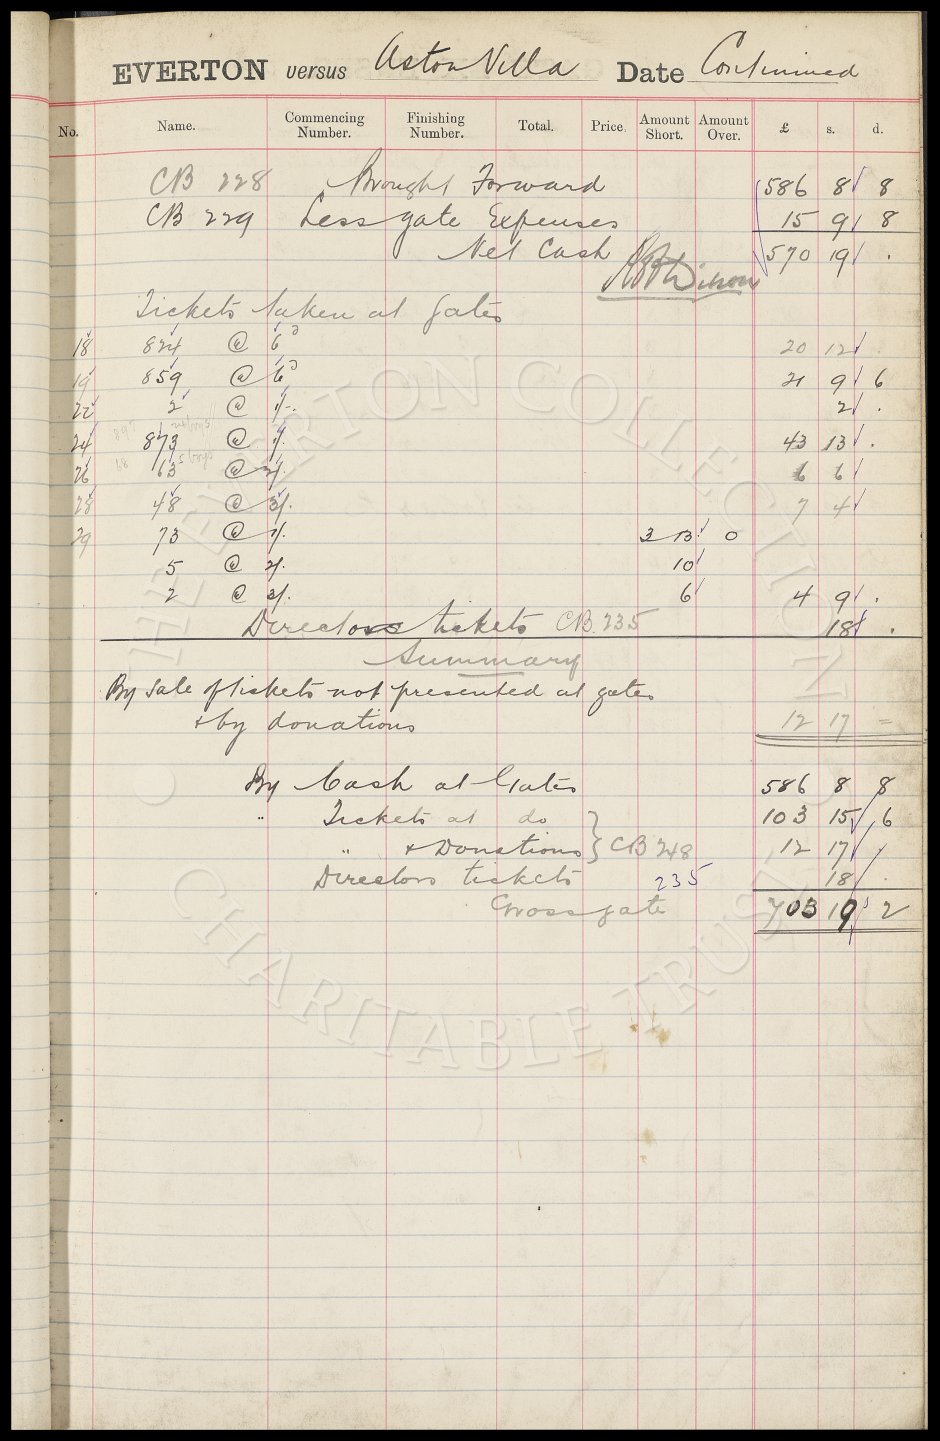 EVERTON versus Aston Villa Date Continued
No. Name. Commencing Number. Finishing Number. Total. Price. Amount Short. Amount Over. £ s. d.
CB 228 Brought Forward 586 8 8
CB 229 Less gate Expenses 15 9 8
Net Cash 570 19 .
Tickets taken at Gates
18 824 @ 6d 20 12 .
19 859 @ 6d 21 9 6
22 2 @ 1/-. 2 .
24 873 @ 1/. 43 13 .
26 63 @ 2/. 6 6
28 48 @ 3/. 7 4
29 73 @ 1/. 3 13 0
5 @ 2/. 10
2 @ 3/. 6 4 9 .
Directors tickets CB. 235 18 .
Summary
By Sale of tickets not presented at gates
& by donations 12 17 =
By Cash at Gates 586 8 8
" Tickets at do 103 15 6
" & Donations } CB 248 12 17
Directors tickets 235 18 .
Gross gate 703 19 2
THE EVERTON COLLECTION
CHARITABLE TRUST